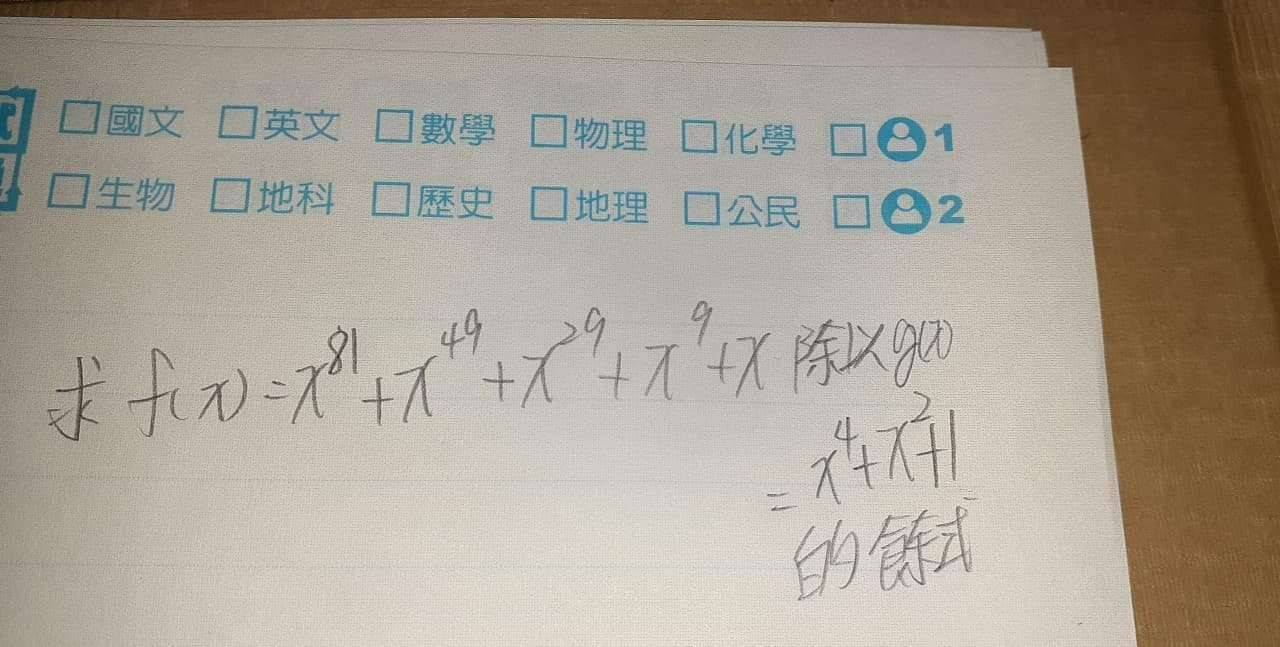 □國文 □英文 □數學 □物理 □化學 □ 1
□生物 □地科 □歷史 □地理 □公民 □ 2
求 f(x)=x⁸¹+x⁴⁹+x²⁹+x⁹+x 除以g(x)
=x⁴+x²+1
的餘式